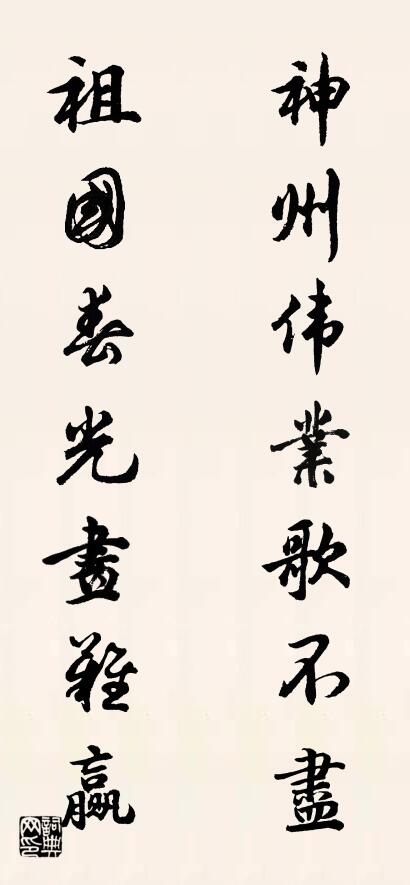 神州伟業歌不盡
祖國春光畫難贏
詞典網印